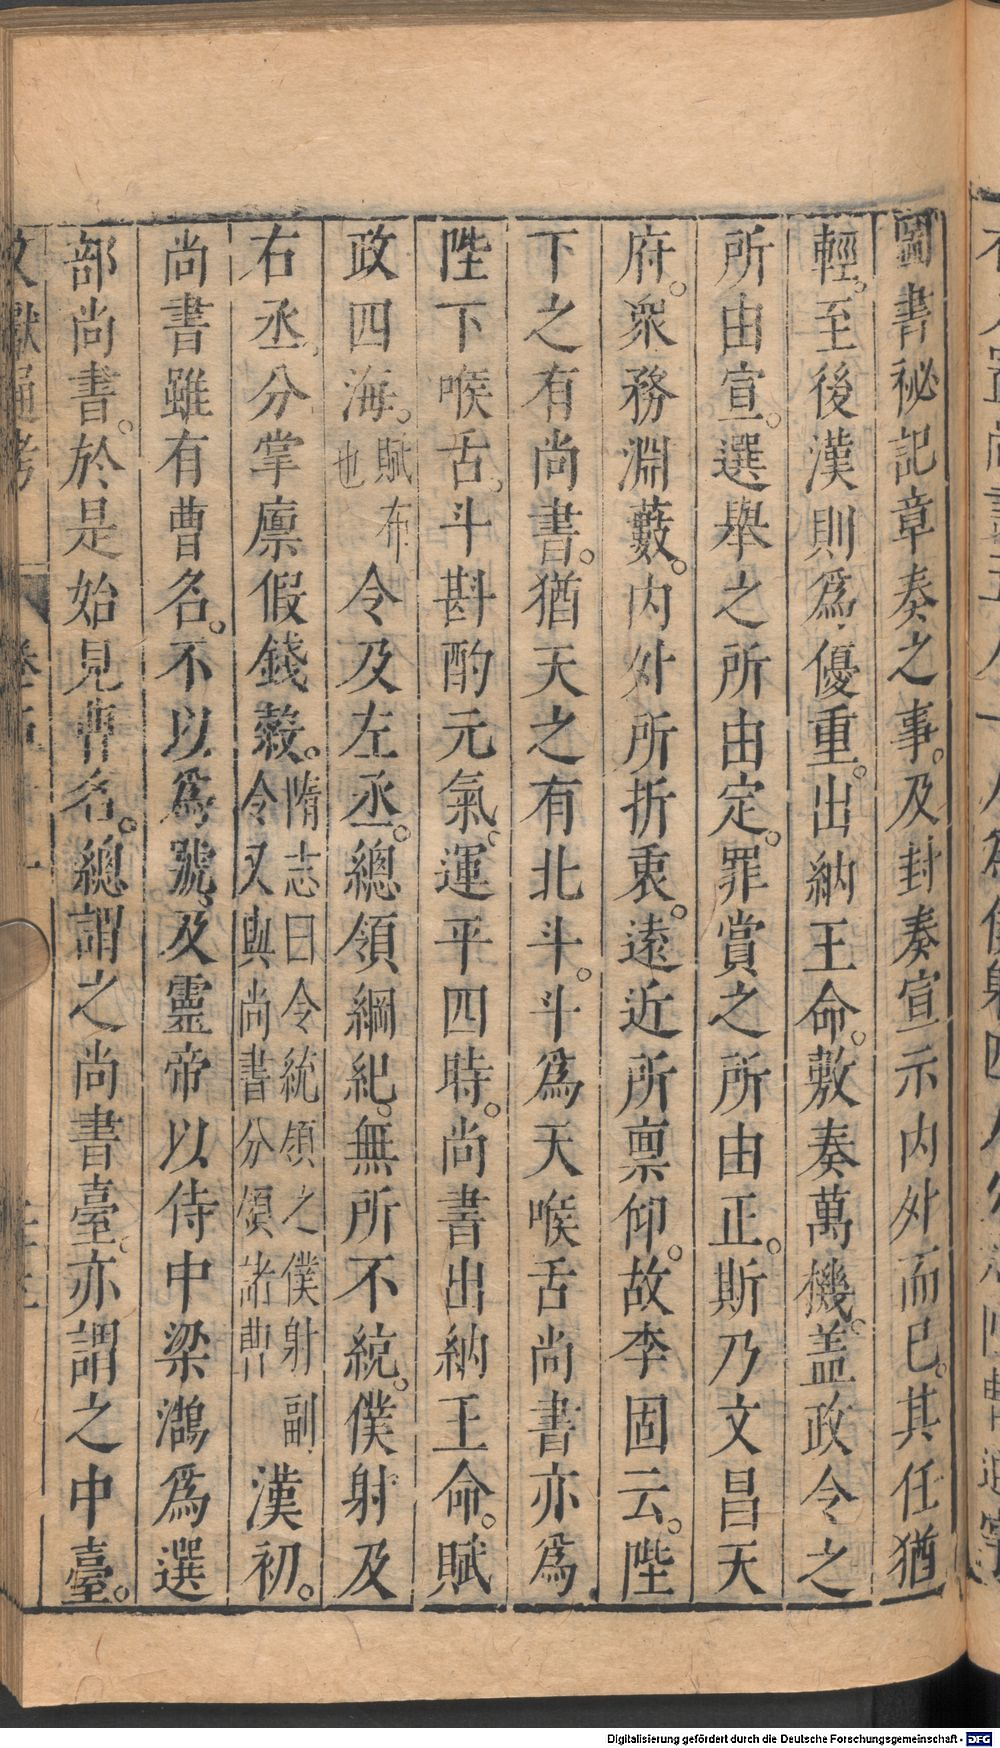 圖書祕記章奏之事。及封奏宣示内外而已。其任猶
輕。至後漢則爲優重。出納王命。敷奏萬機。盖政令之
所由宣。選舉之所由定。罪賞之所由正。斯乃文昌天
府。衆務淵藪。内外所折衷。遠近所禀仰。故李固云。陛
下之有尚書。猶天之有北斗。斗爲天喉舌尚書亦爲
陛下喉舌。斗斟酌元氣。運平四時。尚書出納王命。賦
政四海。賦布也令及左丞。總領綱紀。無所不統。僕射及
右丞。分掌廪假錢穀。隋志曰令統領之僕射副令又與尚書分領諸曹漢初。
尚書雖有曹名。不以爲號。及靈帝以侍中梁鵠爲選
部尚書。於是始見曹名。總謂之尚書臺。亦謂之中臺。
文獻通考
Digitalisierung gefördert durch die Deutsche Forschungsgemeinschaft - DFG